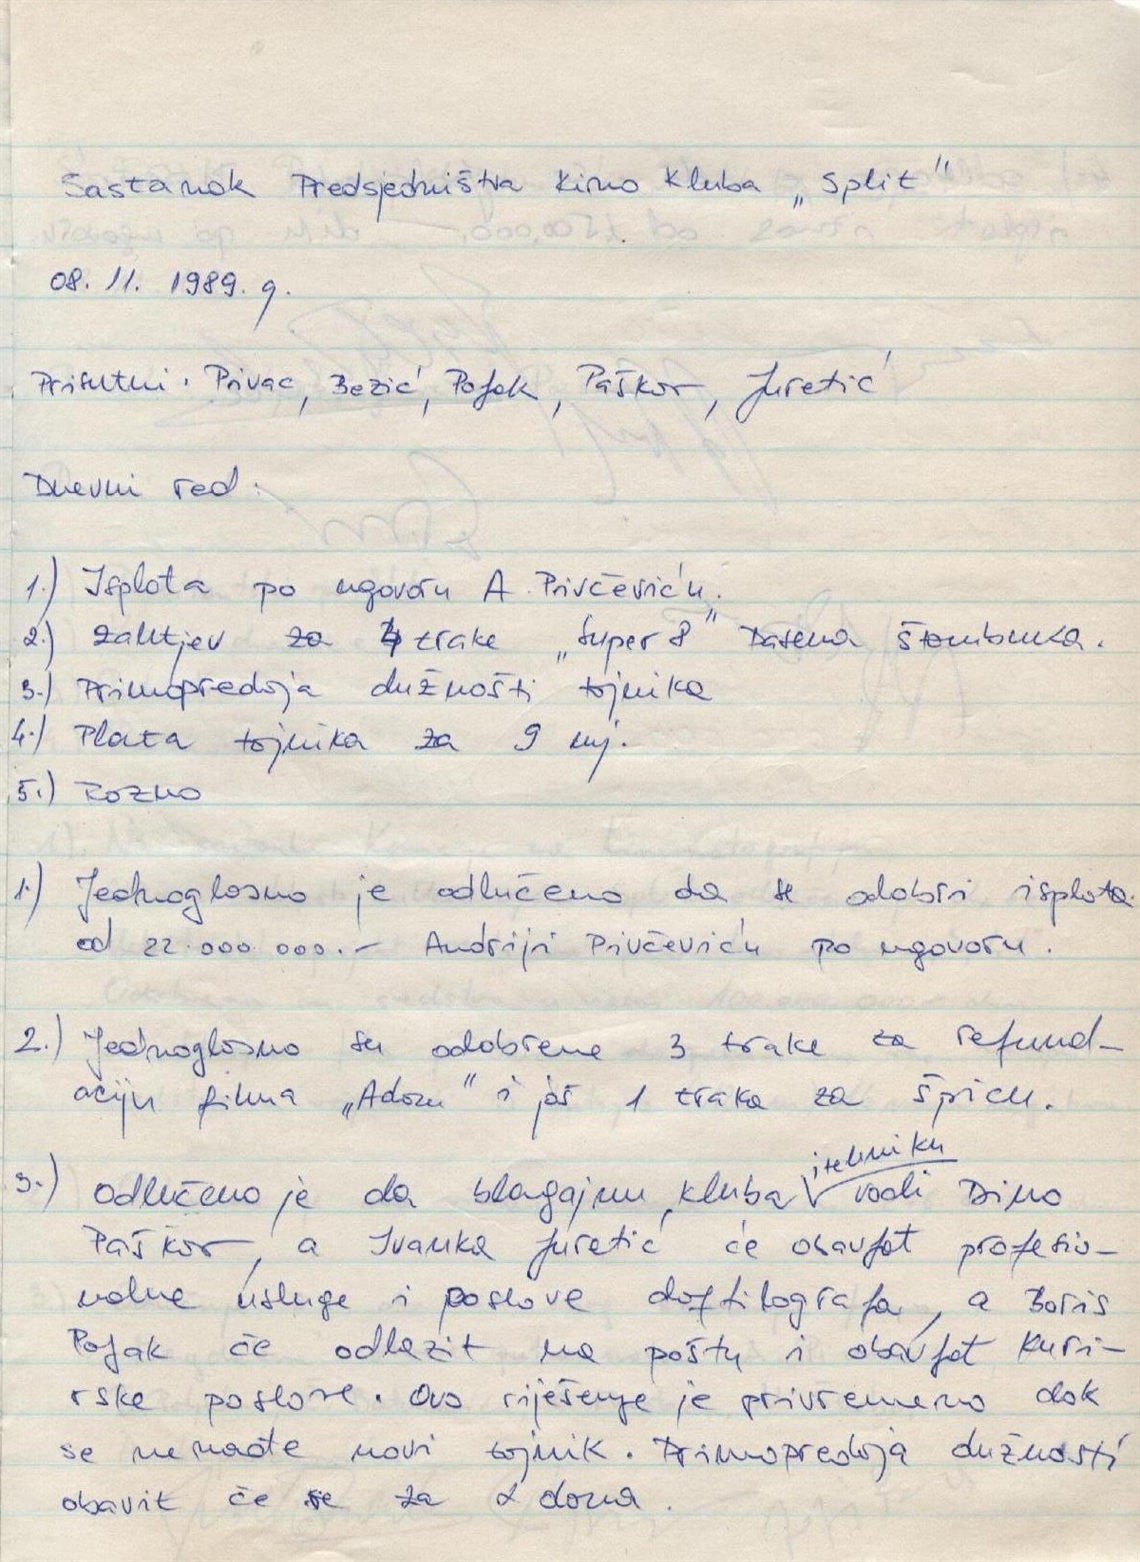 Sastanak Predsjedništva Kino Kluba „Split"
08. 11. 1989. g.
Prisutni: Privac, Bezić, Poljak, Paškov, Juretić
Dnevni red:
1.) Isplata po ugovoru A. Pivčeviću.
2.) Zahtjev za 4 trake „Super 8" Dašena Štambuka.
3.) Primopredaja dužnosti tajnika
4.) Plata tajnika za 9 mj.
5.) Razno
1.) Jednoglasno je odlučeno da se odobri isplata
od 22.000.000.- Andriji Pivčeviću po ugovoru.
2.) Jednoglasno su odobrene 3 trake za refund-
aciju filma „Adam" i još 1 traka za špicu.
3.) Odlučeno je da blagajnu kluba i tehniku vodi Dino
Paškov, a Ivanka Juretić će obavljat profesio-
nalne usluge i poslove daktilografa, a Boris
Poljak će odlazit na poštu i obavljat kuri-
rske poslove. Ovo riješenje je privremeno dok
se nenađe novi tajnik. Primopredaja dužnosti
obavit će se za 2 dana.